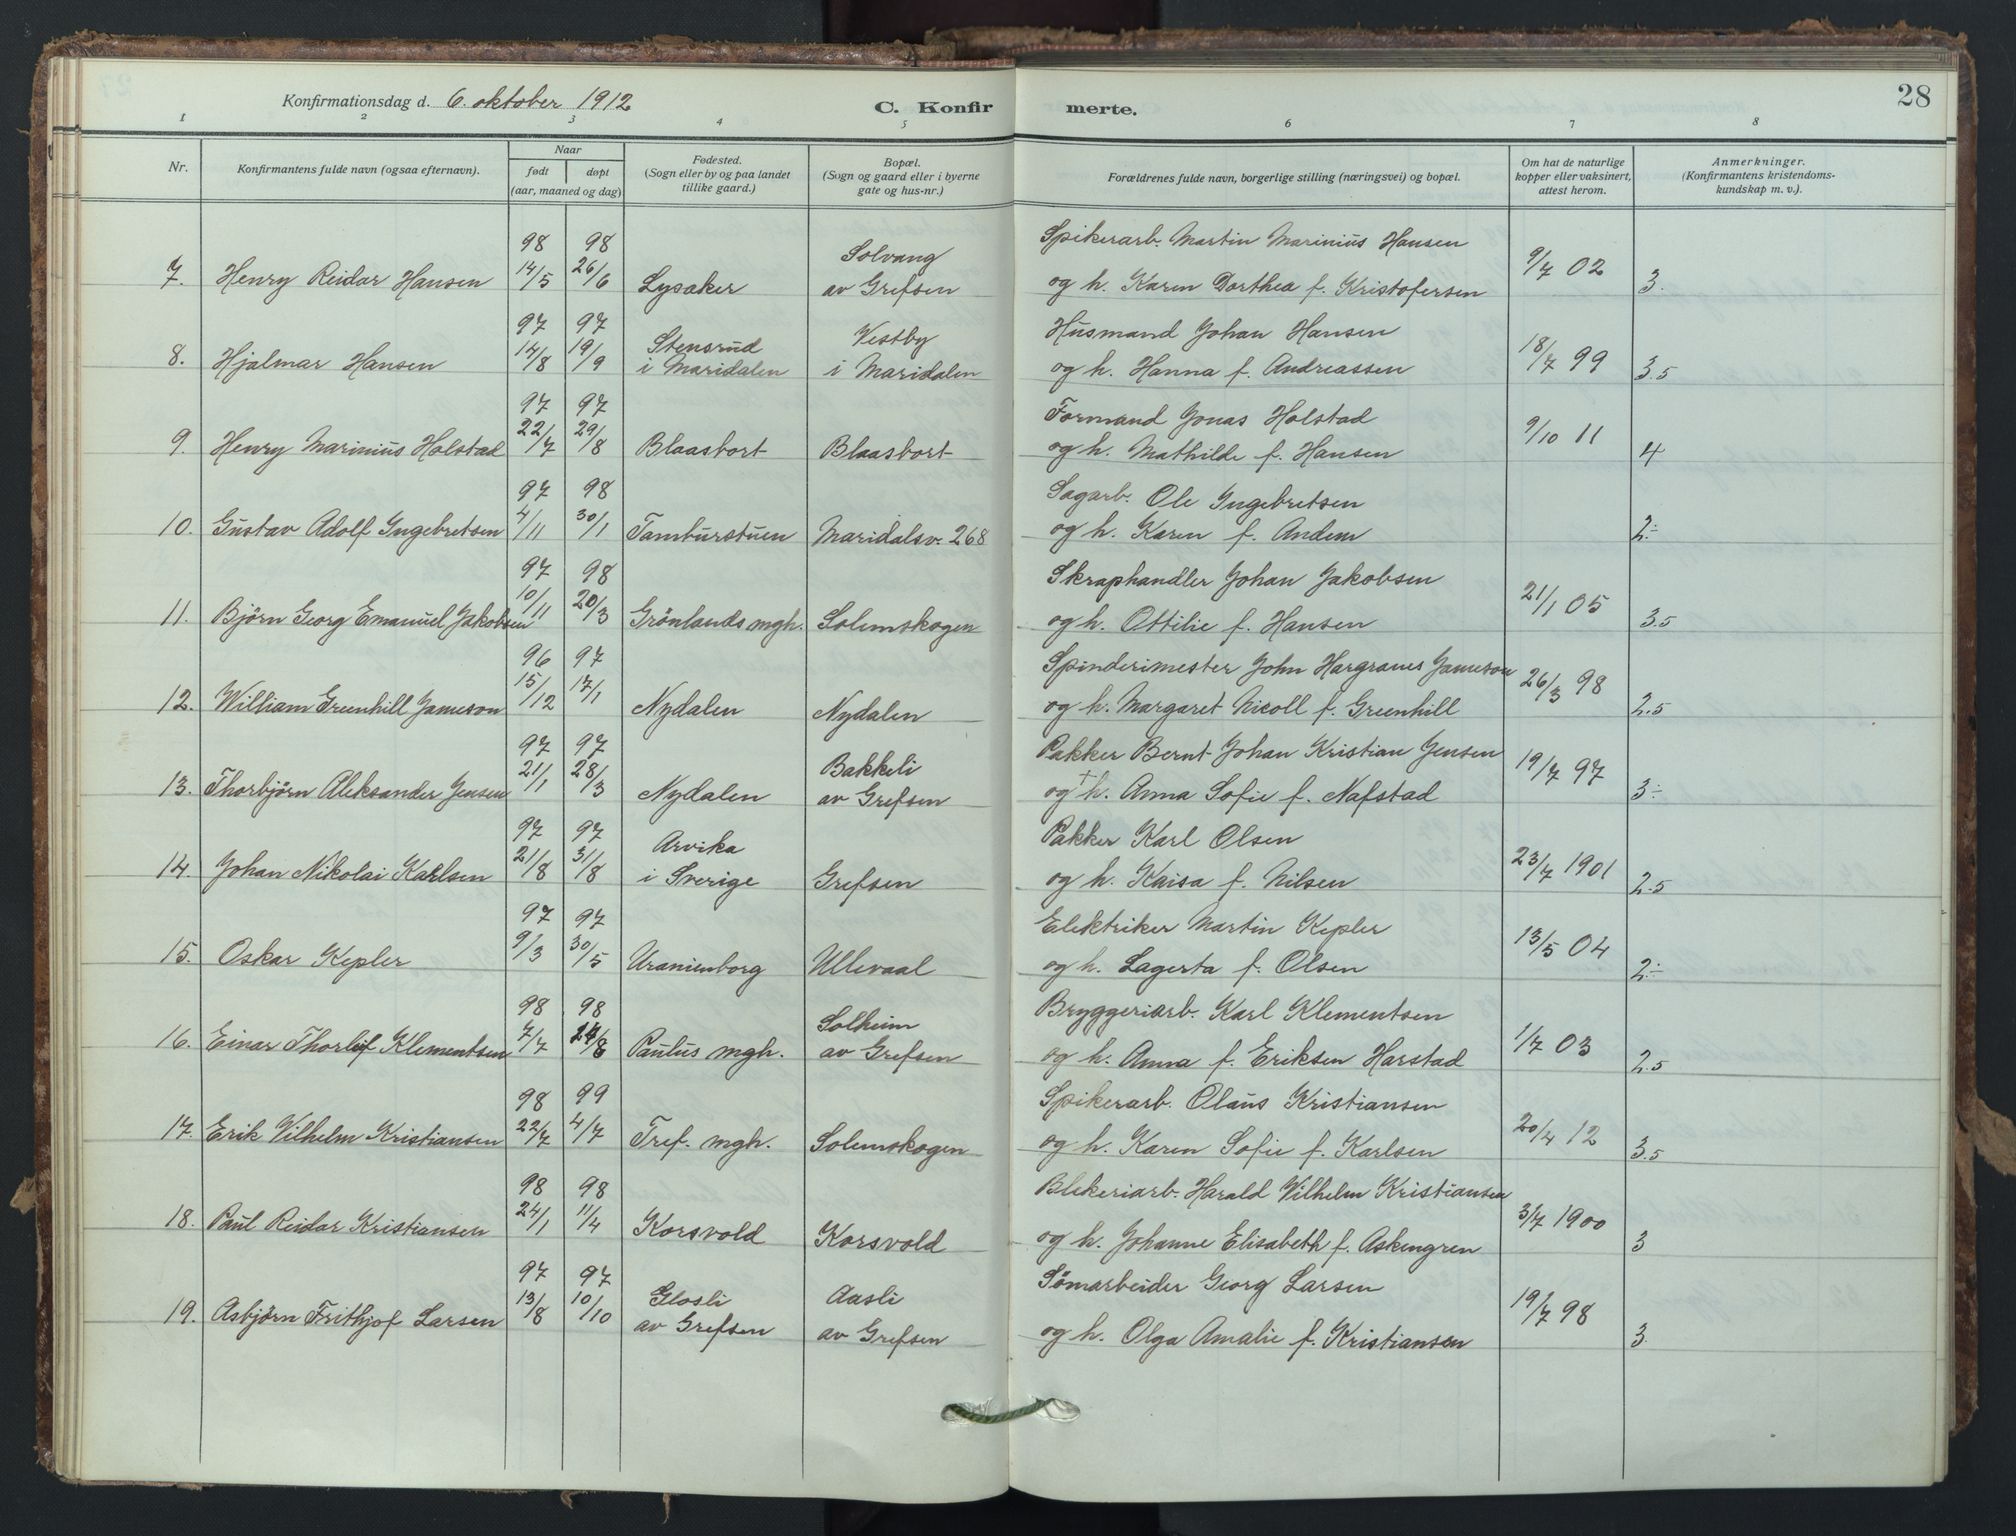 28
Konfirmationsdag d. 6. oktober 1912
C. Konfir merte.
1 2 3 4 5 6 7 8
Nr.
Konfirmantens fulde navn (ogsaa efternavn).
Naar
født døpt
(aar, maaned og dag)
Fødested.
(Sogn eller by og paa landet
tillike gaard.)
Bopæl.
(Sogn og gaard eller i byerne
gate og hus-nr.)
Forældrenes fulde navn, borgerlige stilling (næringsvei) og bopæl.
Om hat de naturlige
kopper eller vaksinert,
attest herom.
Anmerkninger.
(Konfirmantens kristendoms-
kundskap m. v.).
98 98 Solvang Spikerarb. Martin Marinius Hansen
7. Henry Reidar Hansen 14/5 26/6 Lysaker av Grefsen og h. Karen Dorthea f. Kristofersen 9/7 02 3.
97 97 Stensrud Vestby Husmand Johan Hansen
8. Hjalmar Hansen 14/8 19/9 i Maridalen i Maridalen og h. Hanna f. Andreassen 18/7 99 3.5
97 97 Formand Jonas Holstad
9. Henry Marinius Holstad 22/7 29/8 Blaasbort Blaasbort og h. Mathilde f. Hansen 9/10 11 4
97 98 Sagarb. Ole Ingebretsen
10. Gustav Adolf Ingebretsen 4/11 30/1 Tamburstuen Maridalsv. 268 og h. Karen f. Andem 2÷
97 98 Skraphandler Johan Jakobsen
11. Björn Georg Emanuel Jakobsen 10/11 20/3 Grönlands mgh. Solemskogen og h. Ottilie f. Hansen 21/1 05 3.5
96 97 Spinderimester John Hargranes Jameson
12. William Greenhill Jameson 15/12 17/1 Nydalen Nydalen og h. Margaret Nicoll f. Greenhill 26/3 98 2.5
97 97 Bakkeli Pakker Bernt Johan Kristian Jensen
13. Thorbjörn Aleksander Jensen 21/1 28/3 Nydalen av Grefsen og † h. Anna Sofie f. Nafstad 19/7 97 3÷
97 97 Arvika Pakker Karl Olsen
14. Johan Nikolai Karlsen 21/8 31/8 i Sverige Grefsen og h. Kaisa f. Nilsen 23/7 1901 2.5
97 97 Elektriker Martin Kepler
15. Oskar Kepler 9/3 30/5 Uranienborg Ullevaal og h. Lagerta f. Olsen 13/5 04 2÷
98 98 Solheim Bryggeriarb. Karl Klementsen
16. Einar Thorlif Klementsen 7/7 24/8 Paulus mgh. av Grefsen og h. Anna f. Eriksen Harstad 1/7 03 2.5
98 99 Spikerarb. Olaus Kristiansen
17. Erik Vilhelm Kristiansen 22/7 4/7 Tref. mgh. Solemskogen og h. Karen Sofie f. Karlsen 20/4 12 3.5
98 98 Blekeriarb. Harald Vilhelm Kristiansen
18. Paul Reidar Kristiansen 24/1 11/4 Korsvold Korsvold og h. Johanne Elisabeth f. Askengren 3/7 1900 3
97 97 Glosli Aasli Sömarbeider Georg Larsen
19. Asbjörn Frithjof Larsen 13/8 10/10 av Grefsen av Grefsen og h. Olga Amalie f. Kristiansen 19/7 98 3.